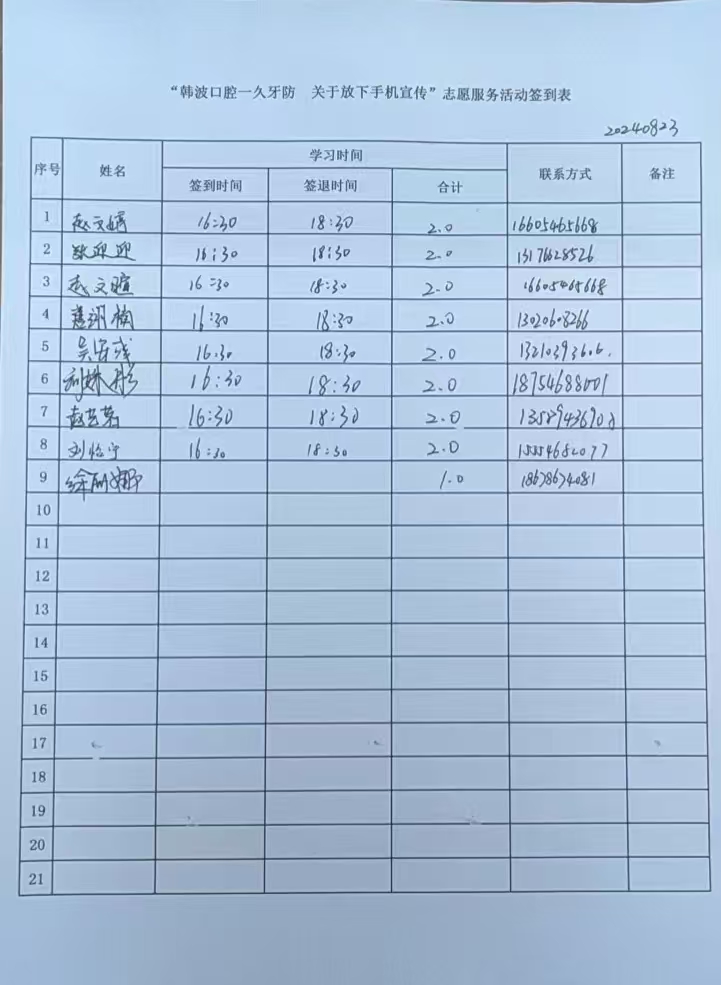 “韩波口腔一久牙防 关于放下手机宣传”志愿服务活动签到表
20240823
序号 姓名 学习时间 联系方式 备注
签到时间 签退时间 合计
1 赵文嫣 16:30 18:30 2.0 16605465668
2 迎迎 16:30 18:30 2.0 13176628526
3 赵文暄 16:30 18:30 2.0 16605465668
4 楠 16:30 18:30 2.0 13020608266
5 吴 16.30 18:30 2.0 13210393606.
6 16:30 18:30 2.0 18754688001
7 16:30 18:30 2.0 13589436908
8 刘怡宁 16:30 18:30 2.0 15554682077
9 徐丽娜 1.0 18678674081
10
11
12
13
14
15
16
17
18
19
20
21